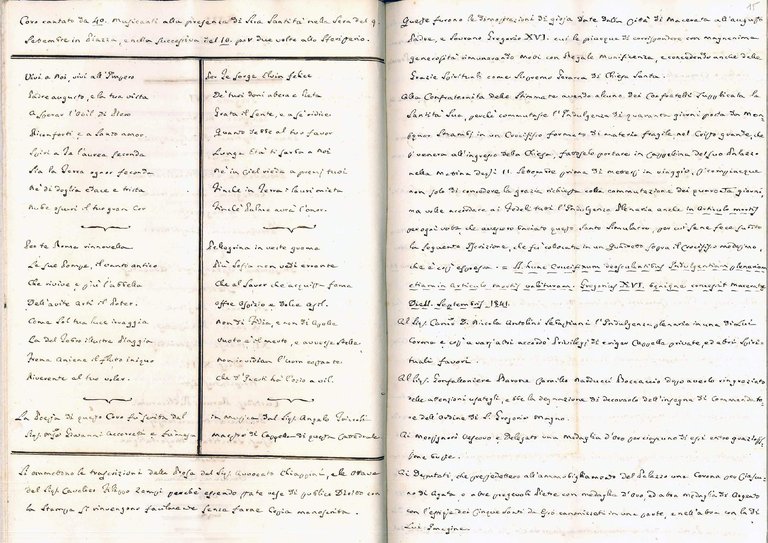 Coro cantato da 40. Musicanti alla presenza di Sua Santità nella Sera del 9.
Settembre in Piazza, e nella successiva del 10. per due volte allo Sferisterio.
Vivi a Noi, vivi all'Impero
Padre augusto, e la tua vista
A sperar l'Ovil di Piero
Riconforti e a Santo amor.
Spiri a Te l'aurea seconda
Sia la Terra ognor feconda
Nè di doglia edace e trista
Nube oscuri il tuo gran Cor
Per te Roma rinnovella
Le sue Pompe, il vanto antico
Che rivive e più s'abbella
Dell'avite arti il Poter.
Come Sol tua luce irraggia
La dal Tebro illustre Piaggia
Frena Aniene il flutto iniquo
Riverente al tuo voler.
La Poesia di questo Coro fu scritta del
Giovanni Accorretti e fu messa
Per Te sorge
De' tuoi doni altera e lieta
Grata il sente, e a se ridice
Quanto debbe al tuo favor
Lunga Età ti serba a Noi
Nè in Ciel vieta a preghi tuoi
Finchè in Terra i lauri mieta
Finchè Palme avrà l'onor.
Pellegrina in veste
Più Sofia non vedi errante
Che al Savor che acquista fama
Offre Ospizio e dolce asil.
Non di Fidia, e non di Apelle
Vuoto è il merto, o avverse stelle
Non invidian l'uom
in Musica dal Sig. Angelo
Maestro di Cappella di questa Cattedrale.
Si ommettono le trascrizioni della Prosa del Sig. Avvocato Chiappini, e le Ottave
del Sig. Cavaliere Filippo Zampi perchè essendo state rese di pubblico Diritto con
la Stampa si rinvengono facilmente senza farne Copia manoscritta.
15
Queste furono le dimostrazioni di gioja date dalla Città di Macerata all'augusto
Padre, e Sovrano Gregorio XVI. cui le piacque di corrispondere con magnanima
generosità rimunerando molti con Regale Munificenza, e concedendo anche delle
Grazie Spirituali come Supremo Gerarca di Chiesa Santa.
Alla Confraternita delle Stimmate avendo alcuni dei Confratelli supplicata la
Santità Sua, perchè commutasse l'Indulgenza di quaranta giorni posta da Mon-
signor Strambi in un Crocifisso formato di materia fragile nel Corpo grande, che
si venera all'ingresso della Chiesa, fattoselo portare in Cappellina del suo Palazzo
nella Mattina degli 11. Settembre prima di mettersi in viaggio, si compiacque
non solo di concedere la grazia richiesta colla commutazione dei quaranta giorni,
ma volle accordare ai Fedeli tutti l'Indulgenza Plenaria anche in Articulo mortis
per ogni volta che avessero baciato questo Santo Simulacro, per cui se ne fece subito
la seguente Iscrizione, che fu collocata in un Quadretto sopra il Crocifisso medesimo,
che è così espressa = Hunc Crucifixum deosculantibus Indulgentiam plenariam
etiam in articulo mortis valituram. Gregorius XVI. benigne concessit Maceratæ
Die 11. Septembris 1841.
Al Sig. Canco. D. Niccola Antolini Sebastiani l'Indulgenza plenaria in una di lui
Corona e così a varj altri accordò Privilegj di eriger Cappella privata, ed altri Spiri-
tuali favori.
Al Sig. Gonfaloniere Barone Camillo Narducci Boccaccio dopo averlo ringraziato
delle attenzioni usategli, ebbe la degnazione di decorarlo dell'insegna di Commendato-
re dell'Ordine di S. Gregorio Magno.
Ai Monsignori Vescovo e Delegato una Medaglia d'Oro per ciascuno di essi entro graziosis-
sime buste.
Ai Deputati, che presiedettero all'ammobigliamento del Palazzo una Corona per Ciascu-
no di agata, o altre pregevoli Pietre con medaglia d'Oro, ed altra medaglia di Argento
con l'effigie dei Cinque Santi da Esso canonizzati in una parte, e nell'altra con la di
Lui Imagine.